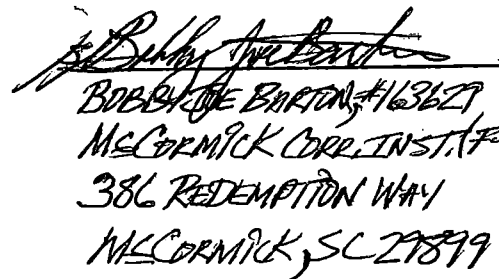 /s/ Bobby Joe Barton
BOBBY JOE BARTON, #163629
MCCORMICK CORR. INST. (F
386 REDEMPTION WAY
MCCORMICK, SC 29899